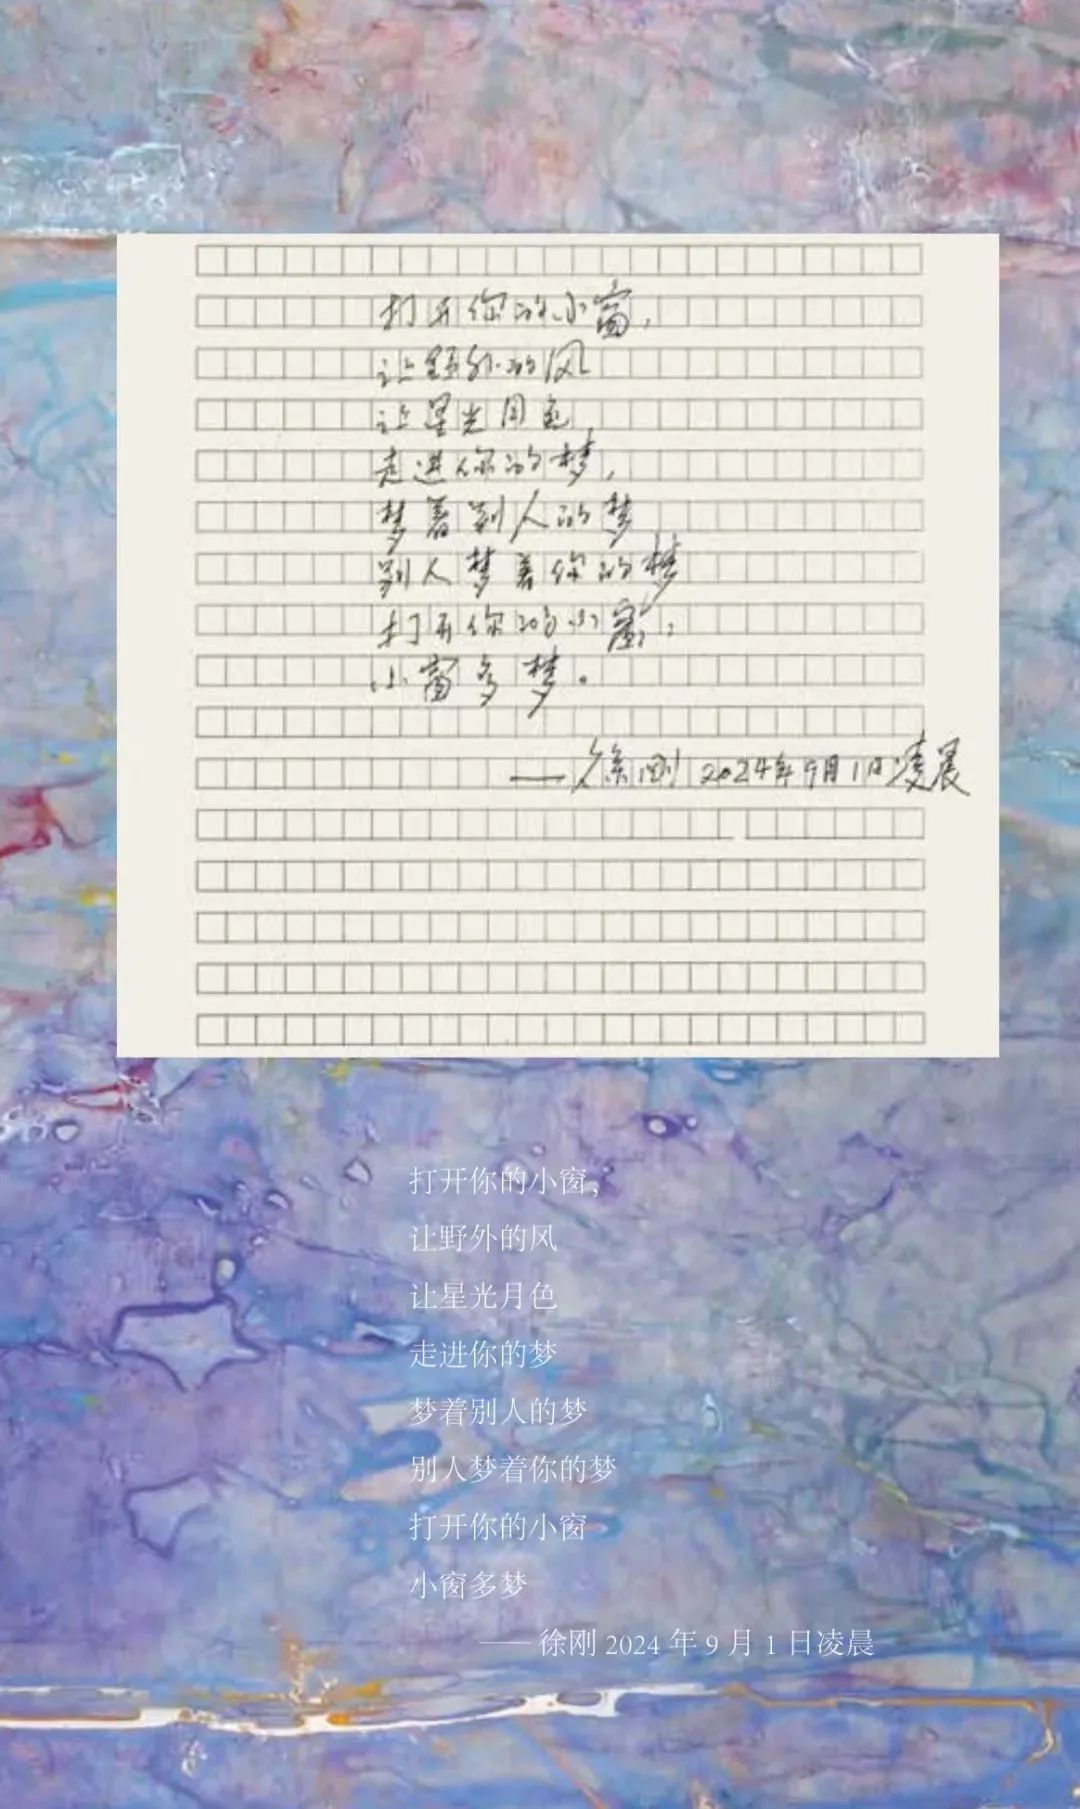 打开你的小窗,
让野外的风
让星光月色
走进你的梦,
梦着别人的梦
别人梦着你的梦
打开你的小窗,
小窗多梦。
——徐刚 2024年9月1日凌晨
打开你的小窗,
让野外的风
让星光月色
走进你的梦
梦着别人的梦
别人梦着你的梦
打开你的小窗
小窗多梦
—— 徐刚 2024 年 9 月 1 日凌晨